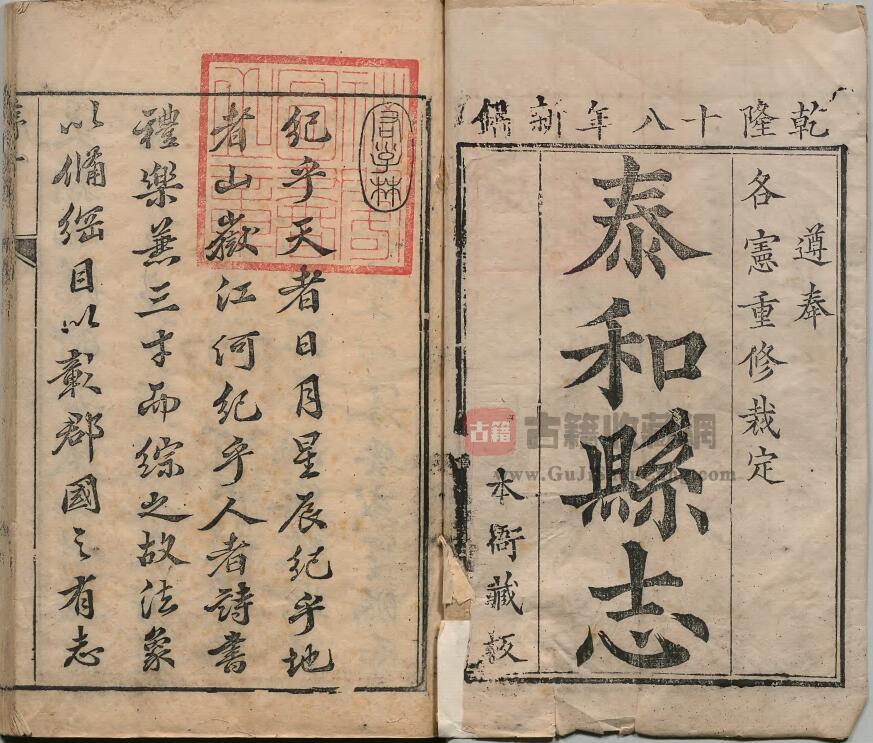 乾隆十八年新鐫
遵奉
各憲重修裁定
泰和縣志
本衙藏板
紀乎天者日月星辰紀乎地
者山嶽江河紀乎人者詩書
禮樂兼三才而綜之故法象
以備綱目以彰郡國之有志
古籍
古籍收藏网